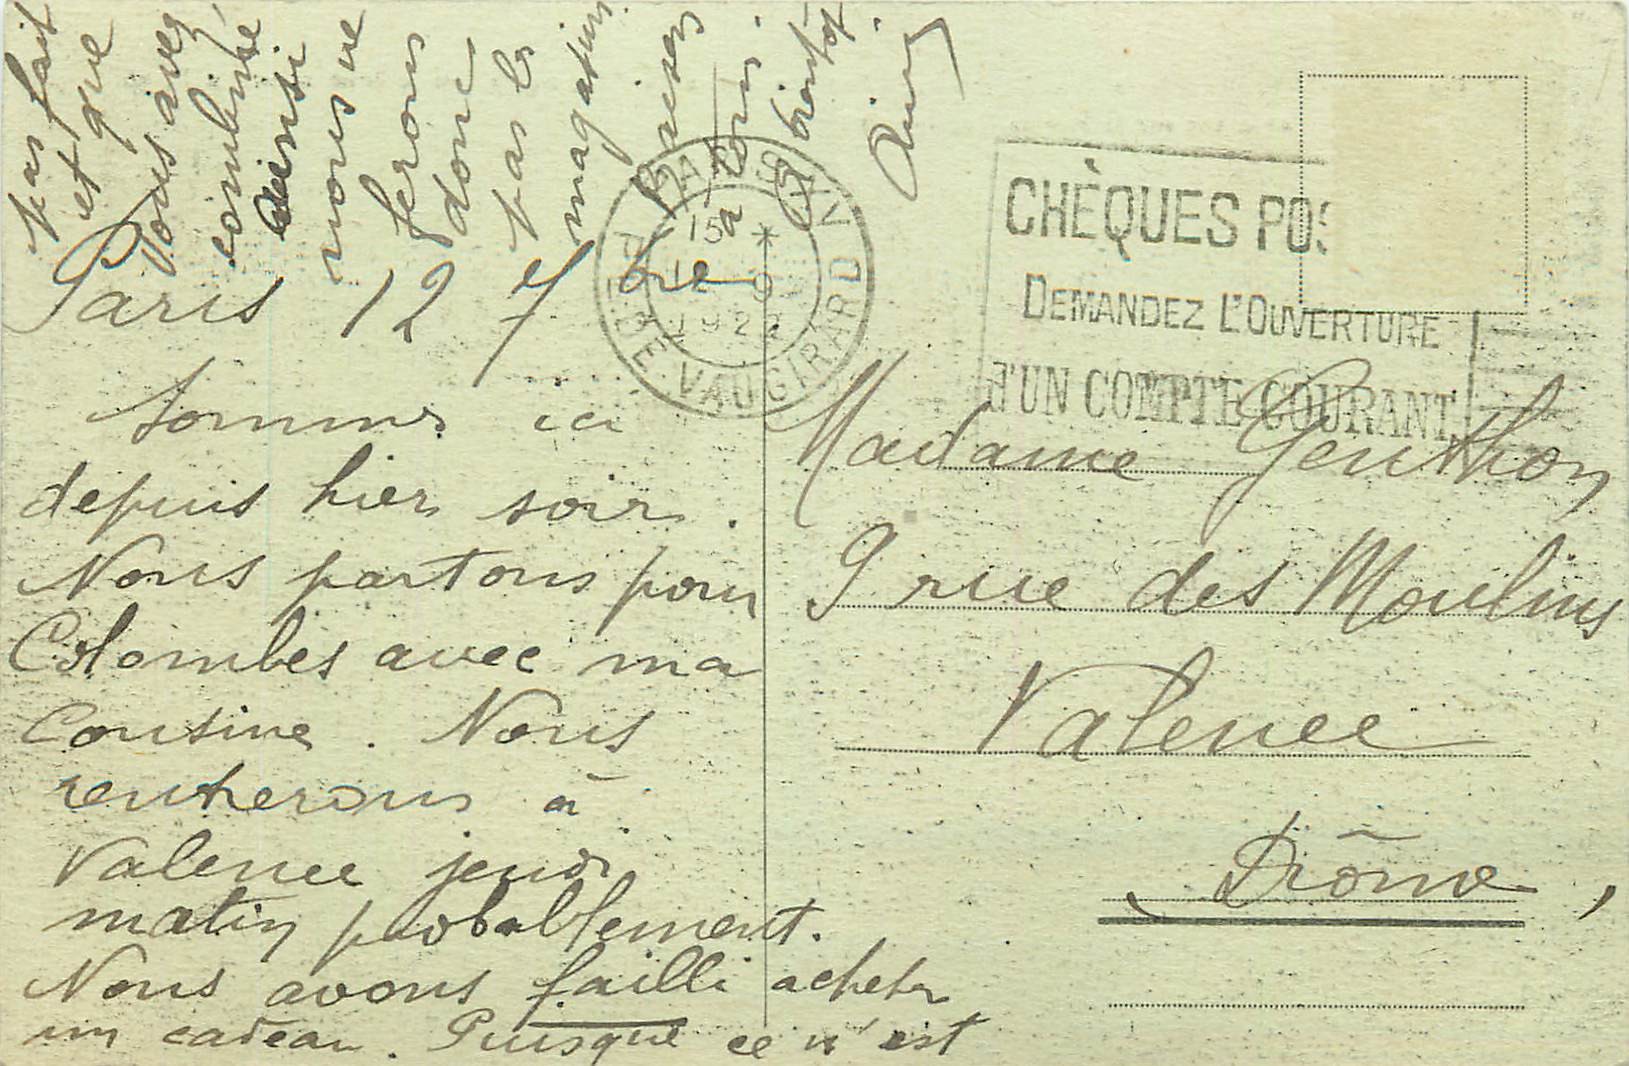 Paris 12 7bre
Sommes ici
depuis hier soir.
Nous partons pour
Colombes avec ma
Cousine. Nous
rentrerons à
Valence jeudi
matin probablement.
Nous avons failli acheter
un cadeau. Puisque ce n'est
pas fait
et que
vous avez
combiné
ainsi
nous ne
ferons
donc
pas les
magasins
Baisers
à tous.
A bientôt
PARIS XV
R. DE VAUGIRARD
15
12 - 9
1922
CHÈQUES POS
DEMANDEZ L'OUVERTURE
d'UN COMPTE COURANT
Madame Genthon
9 rue des Moulins
Valence
Drôme